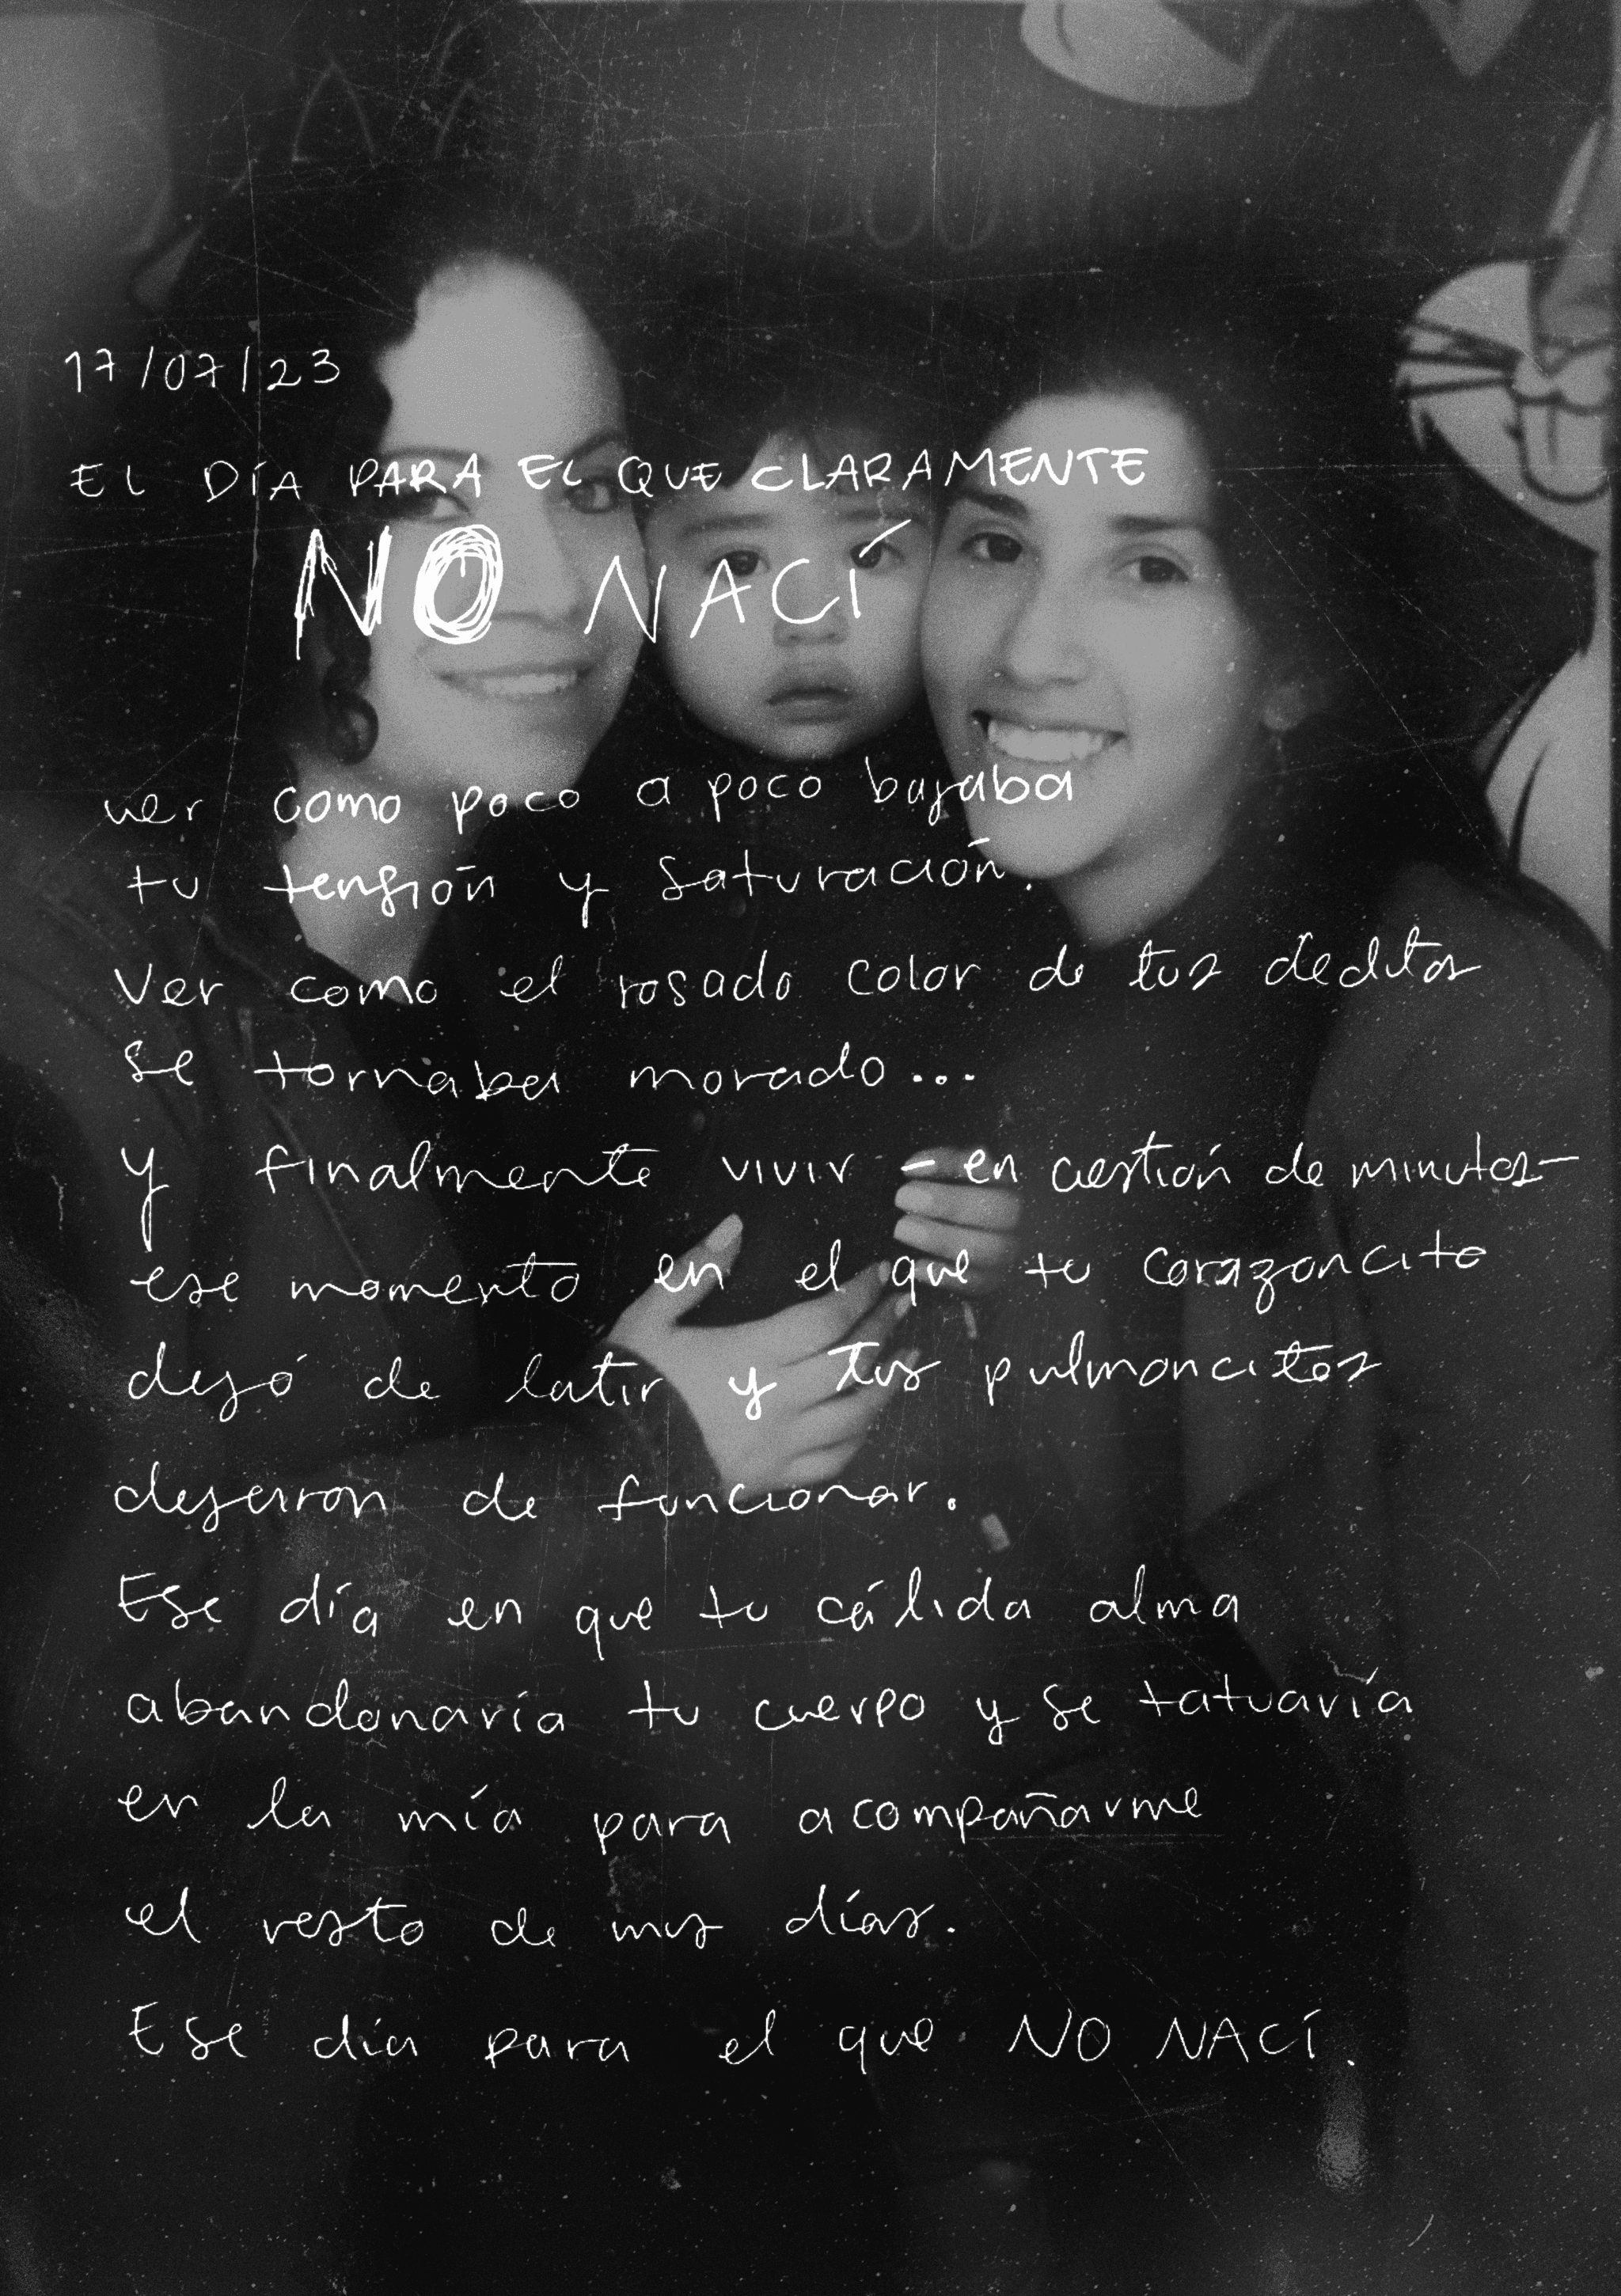 17/07/23
EL DÍA PARA EL QUE CLARAMENTE
NO NACÍ
ver como poco a poco bajaba
tu tensión y saturación.
Ver como el rosado color de tus deditos
se tornaba morado...
y finalmente vivir - en cuestión de minutos-
ese momento en el que tu corazoncito
dejó de latir y tus pulmoncitos
dejaron de funcionar.
Ese día en que tu cálida alma
abandonaría tu cuerpo y se tatuaría
en la mía para acompañarme
el resto de mis días.
Ese día para el que NO NACÍ.